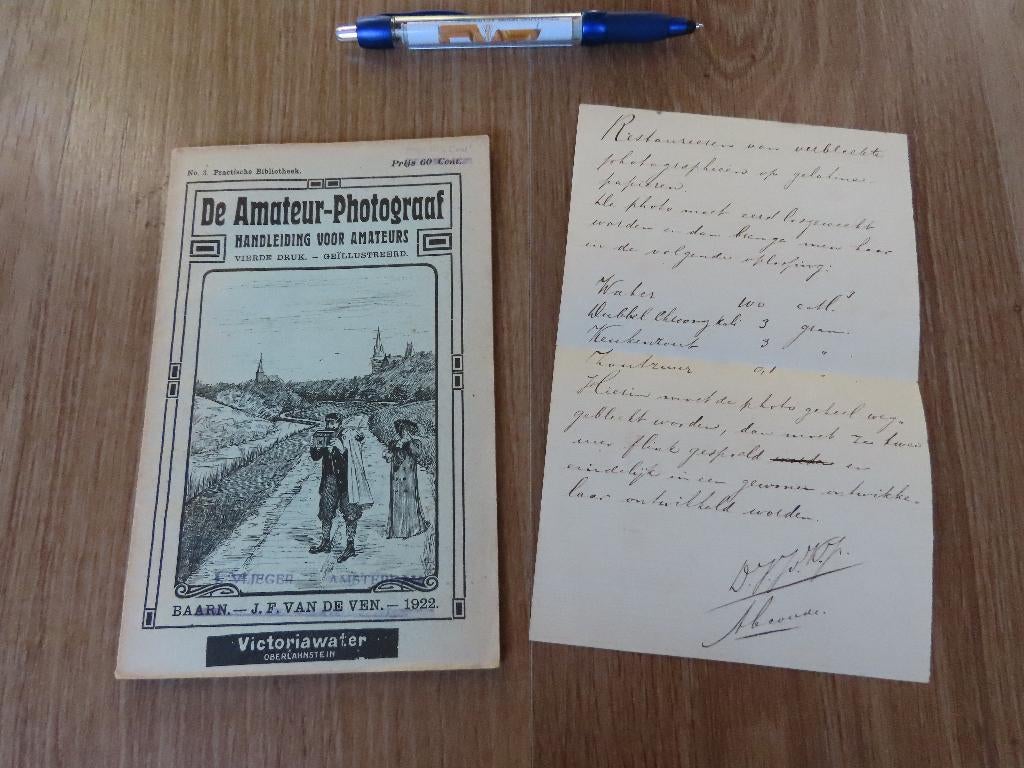 Prijs 60 Cent.
No. 3. Practische Bibliotheek.
De Amateur-Photograaf
HANDLEIDING VOOR AMATEURS
VIERDE DRUK. – GEÏLLUSTREERD.
VLIEGER AMSTERDAM
BAARN. — J. F. VAN DE VEN. — 1922.
Victoriawater
OBERLAHNSTEIN
Restaureeren van verbleekte
photographieën op gelatine-
papieren.
De photo moet eerst losgeweekt
worden en dan brenge men haar
in de volgende oplossing:
Water 100 cM.³
Dubbel Chroomzkali 3 gram.
Keukenzout 3 "
Zoutzuur 0,1 "
Hierin moet de photo geheel weg-
gebleekt worden, dan moet ze twee
uur flink gespoeld en
eindelijk in een gewonen ontwikke-
laar ontwikkeld worden.
Abcoude.